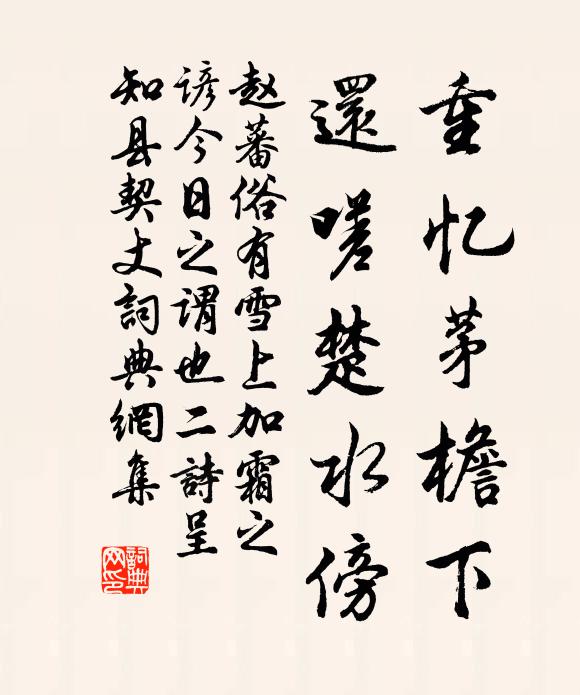 重忆茅檐下
還嗟楚水傍
赵蕃俗有雪上加霜之
谚今日之谓也二詩呈
知县契丈詞典網集
詞典网印